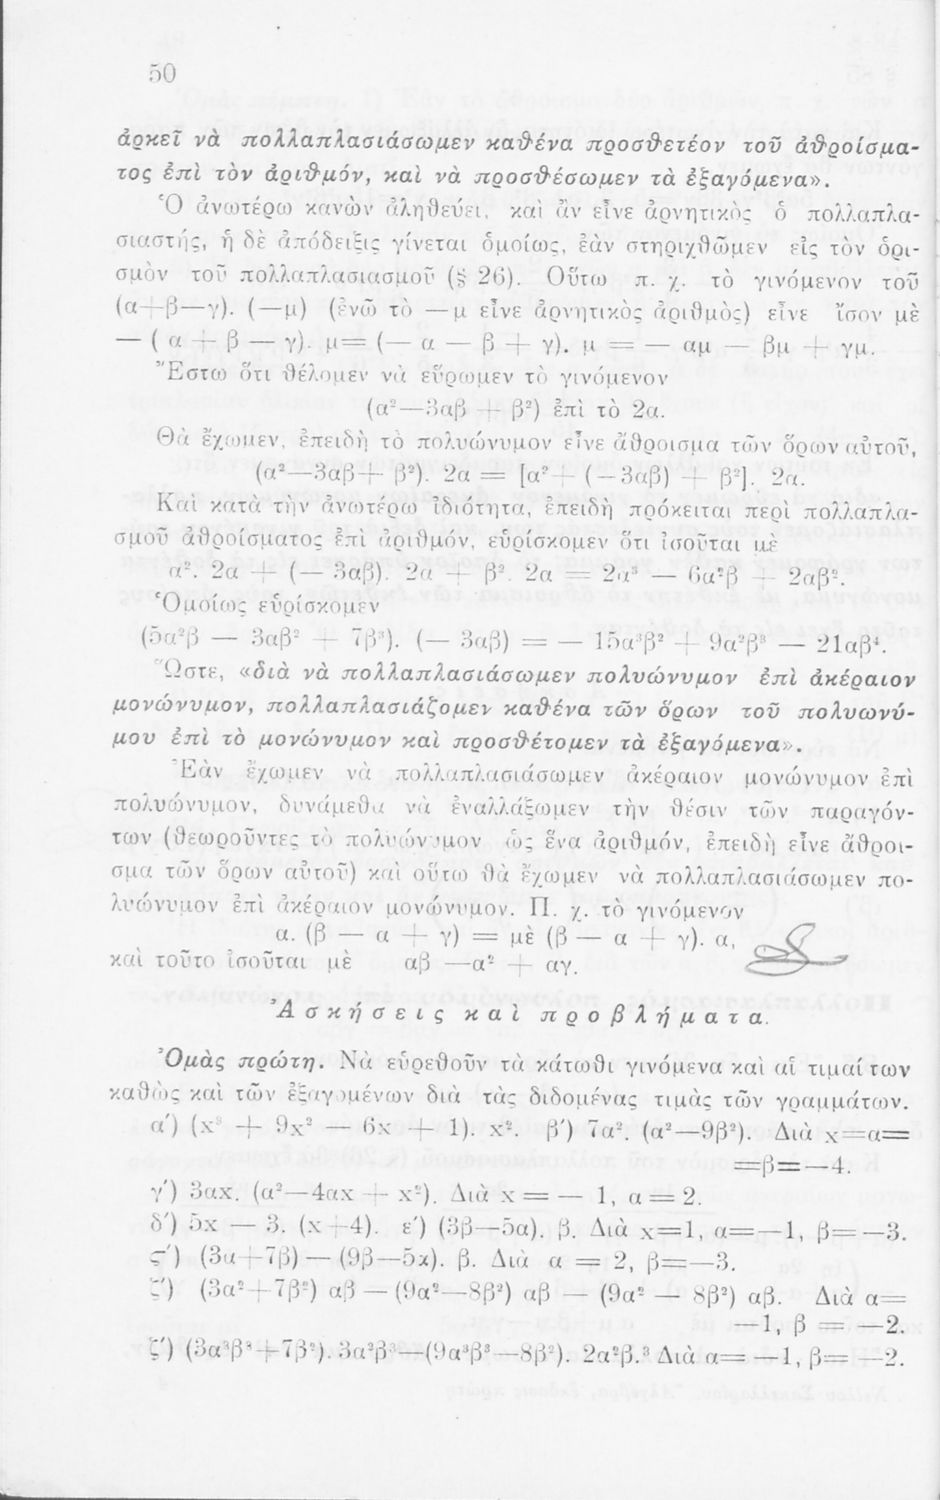 50
ἀρκεῖ νὰ πολλαπλασιάσωμεν καθένα προσθετέον τοῦ ἀθροίσμα-
τος ἐπὶ τὸν ἀριθμόν, καὶ νὰ προσθέσωμεν τὰ ἐξαγόμενα».
Ὁ ἀνωτέρω κανὼν ἀληθεύει, καὶ ἂν εἶνε ἀρνητικὸς ὁ πολλαπλα-
σιαστής, ἡ δὲ ἀπόδειξις γίνεται ὁμοίως, ἐὰν στηριχθῶμεν εἰς τὸν ὁρι-
σμὸν τοῦ πολλαπλασιασμοῦ (§ 26). Οὕτω π. χ. τὸ γινόμενον τοῦ
(α+β—γ). (—μ) (ἐνῶ τὸ —μ εἶνε ἀρνητικὸς ἀριθμὸς) εἶνε ἴσον μὲ
— ( α + β — γ). μ= (— α — β + γ). μ = — αμ — βμ + γμ.
Ἔστω ὅτι θέλομεν νὰ εὕρωμεν τὸ γινόμενον
(α²—3αβ + β²) ἐπὶ τὸ 2α.
Θὰ ἔχωμεν, ἐπειδὴ τὸ πολυώνυμον εἶνε ἄθροισμα τῶν ὅρων αὐτοῦ,
(α²—3αβ+ β²). 2α = [α² + (—3αβ) + β²]. 2α.
Καὶ κατὰ τὴν ἀνωτέρω ἰδιότητα, ἐπειδὴ πρόκειται περὶ πολλαπλα-
σμοῦ ἀθροίσματος ἐπὶ ἀριθμόν, εὑρίσκομεν ὅτι ἰσοῦται μὲ
α². 2α + (— 3αβ). 2α + β². 2α = 2α³ — 6α²β + 2αβ².
Ὁμοίως εὑρίσκομεν
(5α²β — 3αβ² + 7β³). (— 3αβ) = — 15α³β² + 9α²β³ — 21αβ⁴.
Ὥστε, «διὰ νὰ πολλαπλασιάσωμεν πολυώνυμον ἐπὶ ἀκέραιον
μονώνυμον, πολλαπλασιάζομεν καθένα τῶν ὅρων τοῦ πολυωνύ-
μου ἐπὶ τὸ μονώνυμον καὶ προσθέτομεν τὰ ἐξαγόμενα».
Ἐὰν ἔχωμεν νὰ πολλαπλασιάσωμεν ἀκέραιον μονώνυμον ἐπὶ
πολυώνυμον, δυνάμεθα νὰ ἐναλλάξωμεν τὴν θέσιν τῶν παραγόν-
των (θεωροῦντες τὸ πολυώνυμον ὡς ἕνα ἀριθμόν, ἐπειδὴ εἶνε ἄθροι-
σμα τῶν ὅρων αὐτοῦ) καὶ οὕτω θὰ ἔχωμεν νὰ πολλαπλασιάσωμεν πο-
λυώνυμον ἐπὶ ἀκέραιον μονώνυμον. Π. χ. τὸ γινόμενον
α. (β — α + γ) = μὲ (β — α + γ). α,
καὶ τοῦτο ἰσοῦται μὲ αβ —α² + αγ.
Ἀσκήσεις καὶ προβλήματα.
Ὁμὰς πρώτη. Νὰ εὑρεθοῦν τὰ κάτωθι γινόμενα καὶ αἱ τιμαί των
καθὼς καὶ τῶν ἐξαγομένων διὰ τὰς διδομένας τιμὰς τῶν γραμμάτων.
α′) (x³ + 9x² — 6x + 1). x². β′) 7α². (α²—9β²). Διὰ x=α=
=β=—4.
γ′) 3αx. (α²—4αx + x²). Διὰ x = — 1, α = 2.
δ′) 5x — 3. (x+4). ε′) (3β—5α). β. Διὰ x=1, α=—1, β=—3.
ϛ′) (3α+7β)— (9β—5α). β. Διὰ α = 2, β=—3.
ζ′) (3α²+7β²) αβ — (9α²—8β²) αβ — (9α² — 8β²) αβ. Διὰ α=
—1, β = —2.
ζ′) (3α³β³+7β²). 3α²β³—(9α³β³—8β²). 2α²β.³ Διὰ α=—1, β=—2.